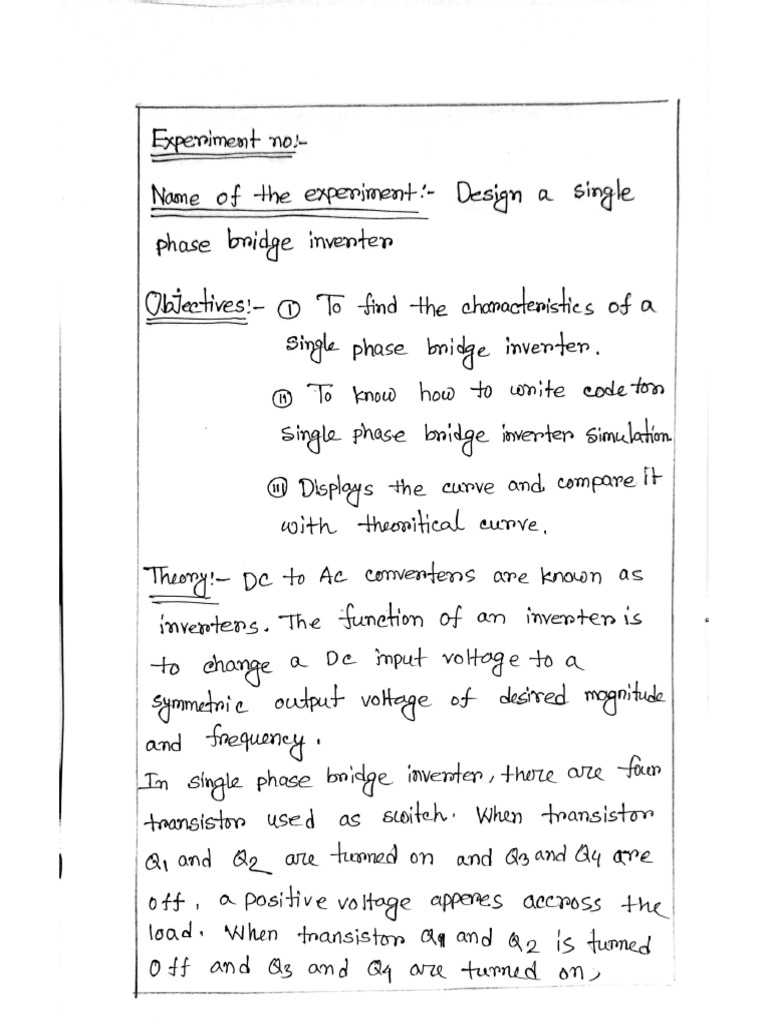 Experiment no:-
Name of the experiment:- Design a single
phase bridge inverter
Objectives:- (I) To find the characteristics of a
single phase bridge inverter.
(II) To know how to write code for
single phase bridge inverter simulation
(III) Displays the curve and compare it
with theoritical curve.
Theory:- DC to AC converters are known as
inverters. The function of an inverter is
to change a DC input voltage to a
symmetric output voltage of desired magnitude
and frequency.
In single phase bridge inverter, there are four
transistor used as switch. When transistor
Q1 and Q2 are turned on and Q3 and Q4 are
off, a positive voltage apperes accross the
load. When transistor Q1 and Q2 is turned
off and Q3 and Q4 are turned on,